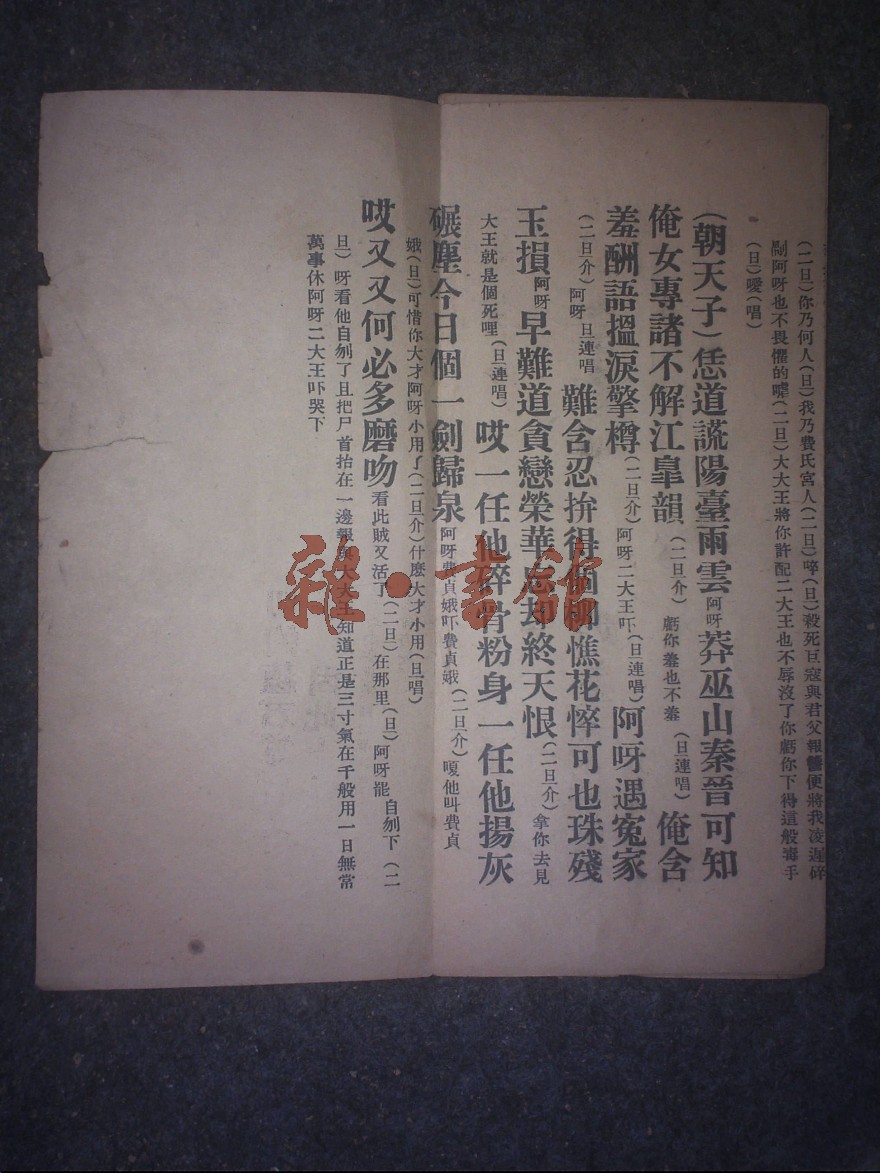 (二旦)你乃何人(旦)我乃費氏宮人(二旦)啐(旦)殺死巨寇與君父報讐便將我凌遲碎
剮阿呀也不畏懼的嘑(二旦)大大王將你許配二大王也不辱沒了你虧你下得這般毒手
(旦)噯(唱)
(朝天子)恁道謊陽臺雨雲阿呀莽巫山秦晉可知
俺女專諸不解江皐韻(二旦介)虧你羞也不羞(旦連唱)俺含
羞酬語搵淚擎樽(二旦介)阿呀二大王吓(旦連唱)阿呀遇寃家
(二旦介)阿呀旦連唱難含忍拚得個柳憔花悴可也珠殘
玉損阿呀早難道貪戀榮華忘却終天恨(二旦介)拿你去見
大王就是個死哩(旦連唱)哎一任他碎骨粉身一任他揚灰
碾塵今日個一劍歸泉阿呀費貞娥吓費貞娥(二旦介)嗄他叫費貞
娥(旦)可惜你大才阿呀小用了(二旦介)什麽大才小用(旦唱)
哎又又何必多磨吻看此賊又活了(二旦)在那里(旦)阿呀罷自刎下(二
旦)呀看他自刎了且把尸首抬在一邊報與大大王知道正是三寸氣在千般用一日無常
萬事休阿呀二大王吓哭下
雜·書館